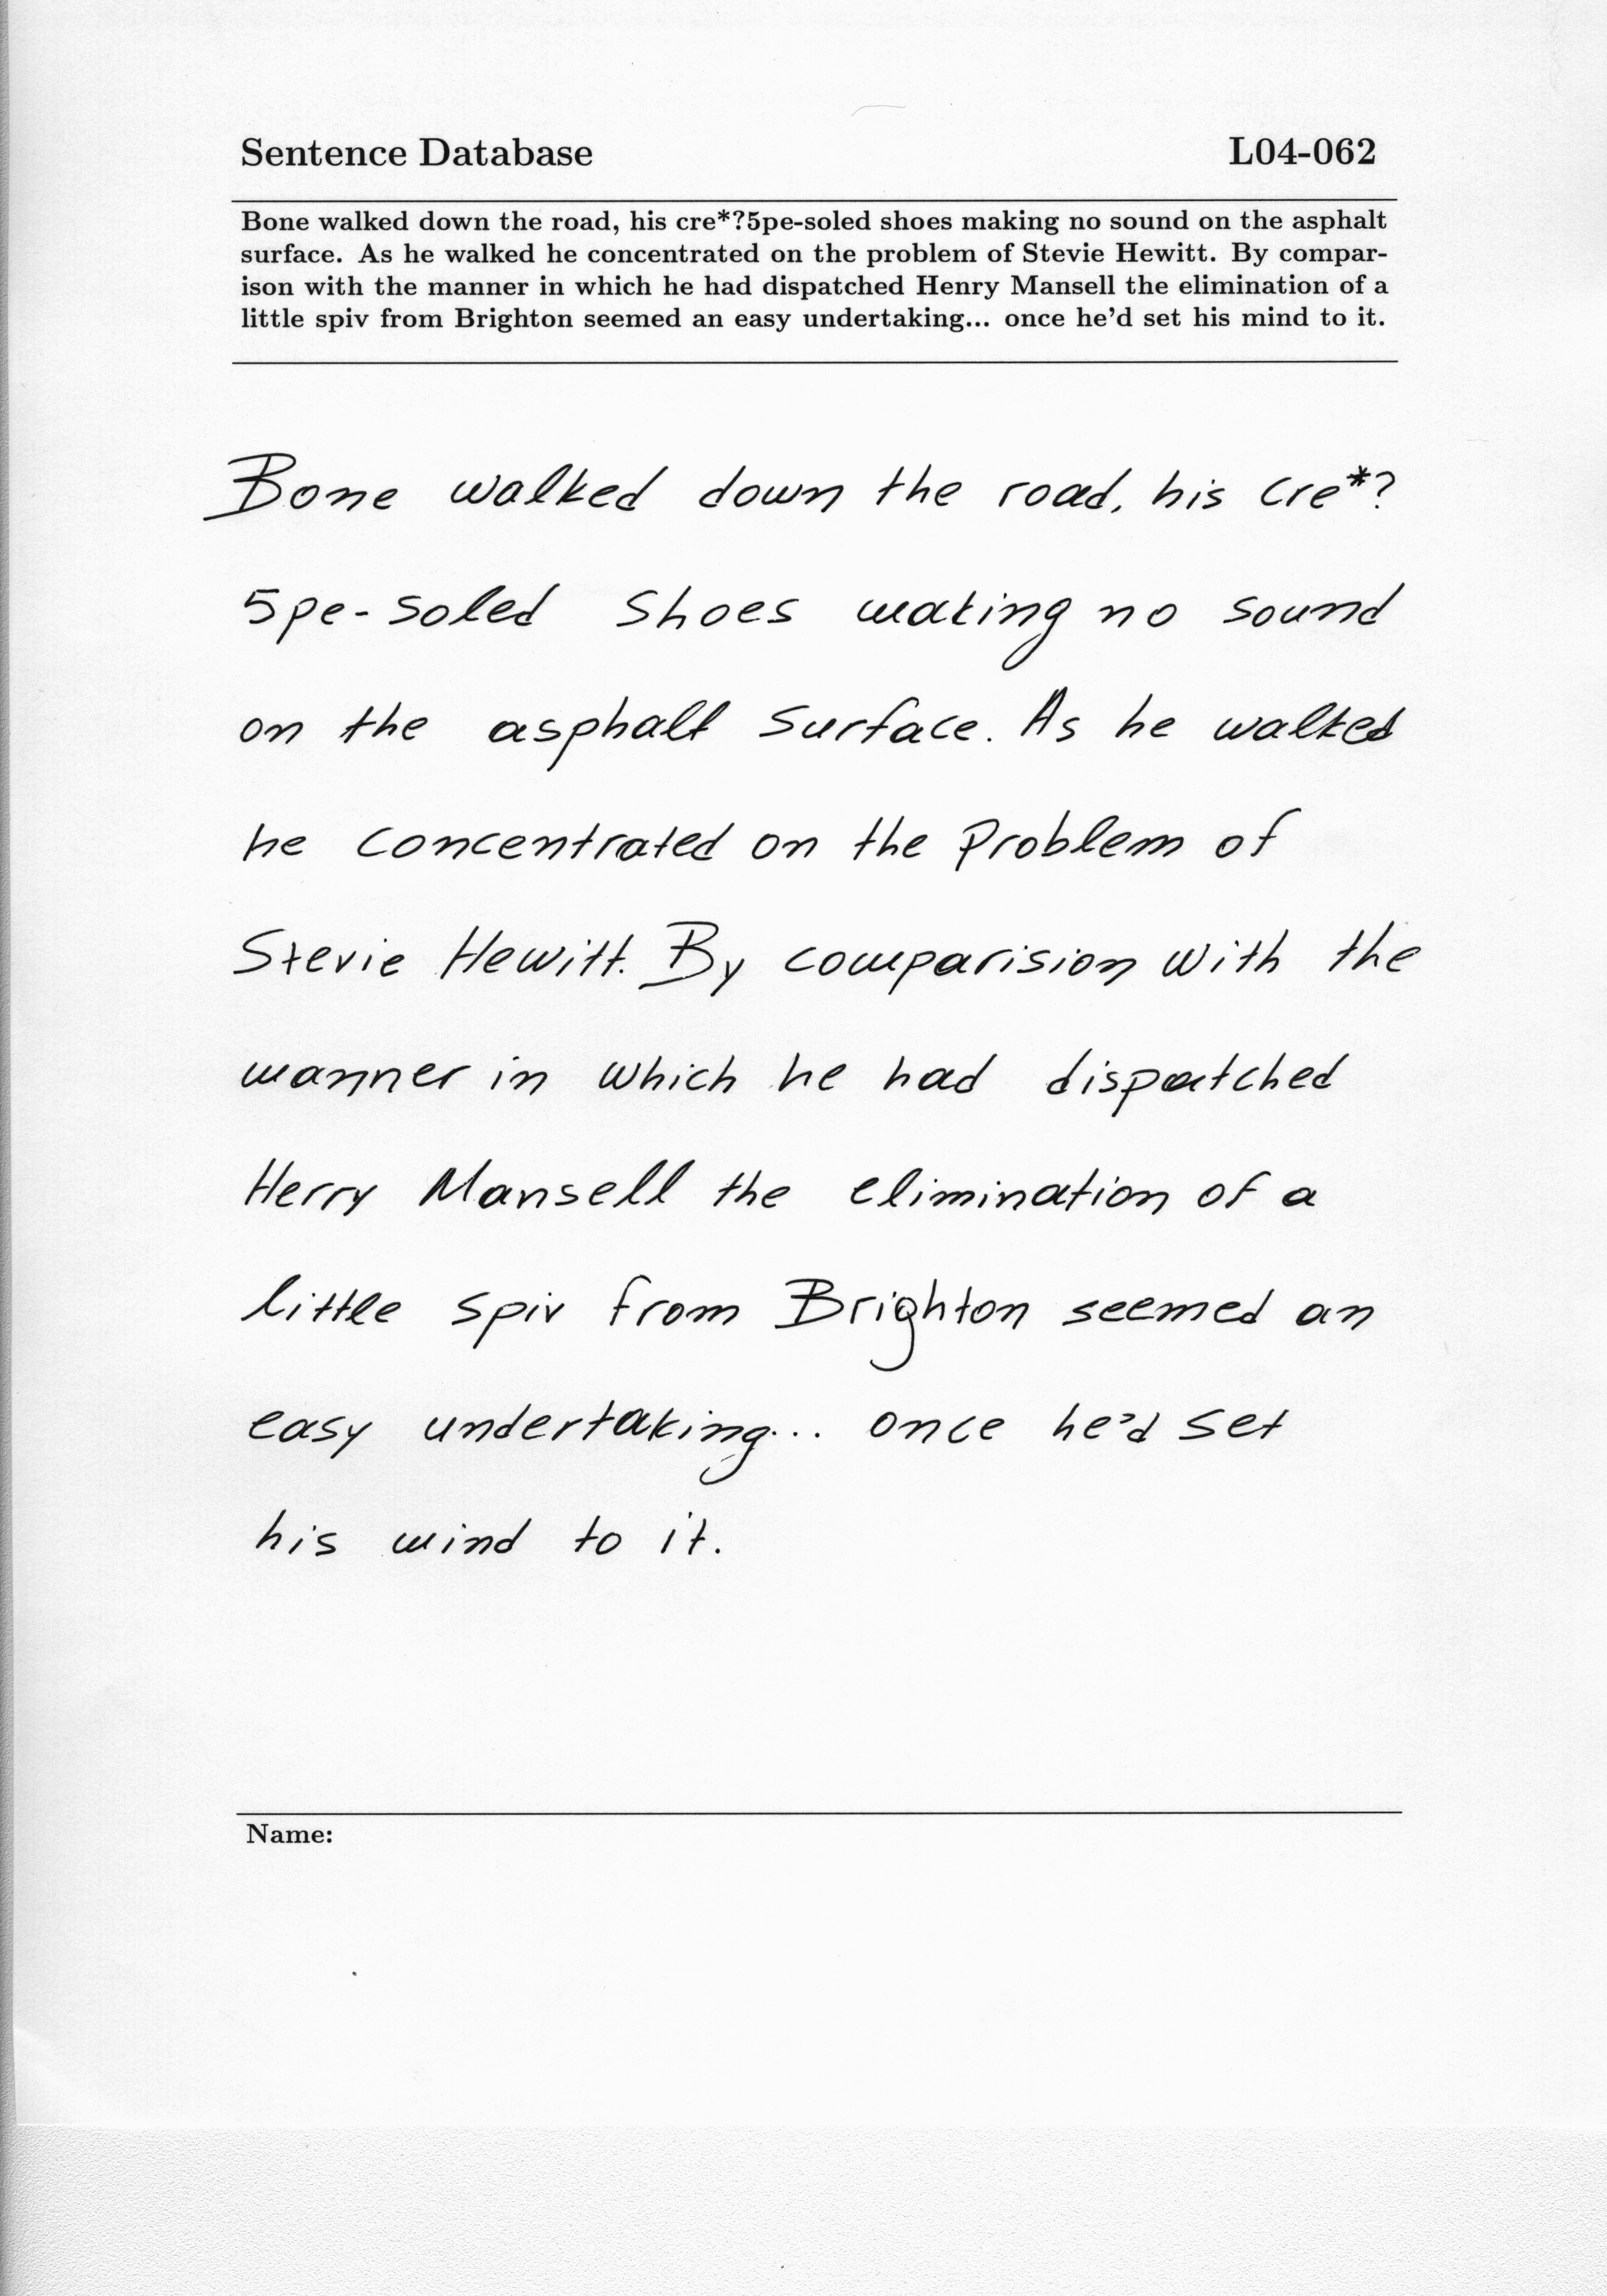 Sentence Database L04-062
Bone walked down the road, his cre*?5pe-soled shoes making no sound on the asphalt
surface. As he walked he concentrated on the problem of Stevie Hewitt. By compar-
ison with the manner in which he had dispatched Henry Mansell the elimination of a
little spiv from Brighton seemed an easy undertaking... once he'd set his mind to it.
Bone walked down the road, his cre*?
5pe-soled shoes making no sound
on the asphalt surface. As he walked
he concentrated on the problem of
Stevie Hewitt. By comparision with the
manner in which he had dispatched
Herry Mansell the elimination of a
little spiv from Brighton seemed an
easy undertaking... once he'd set
his mind to it.
Name: